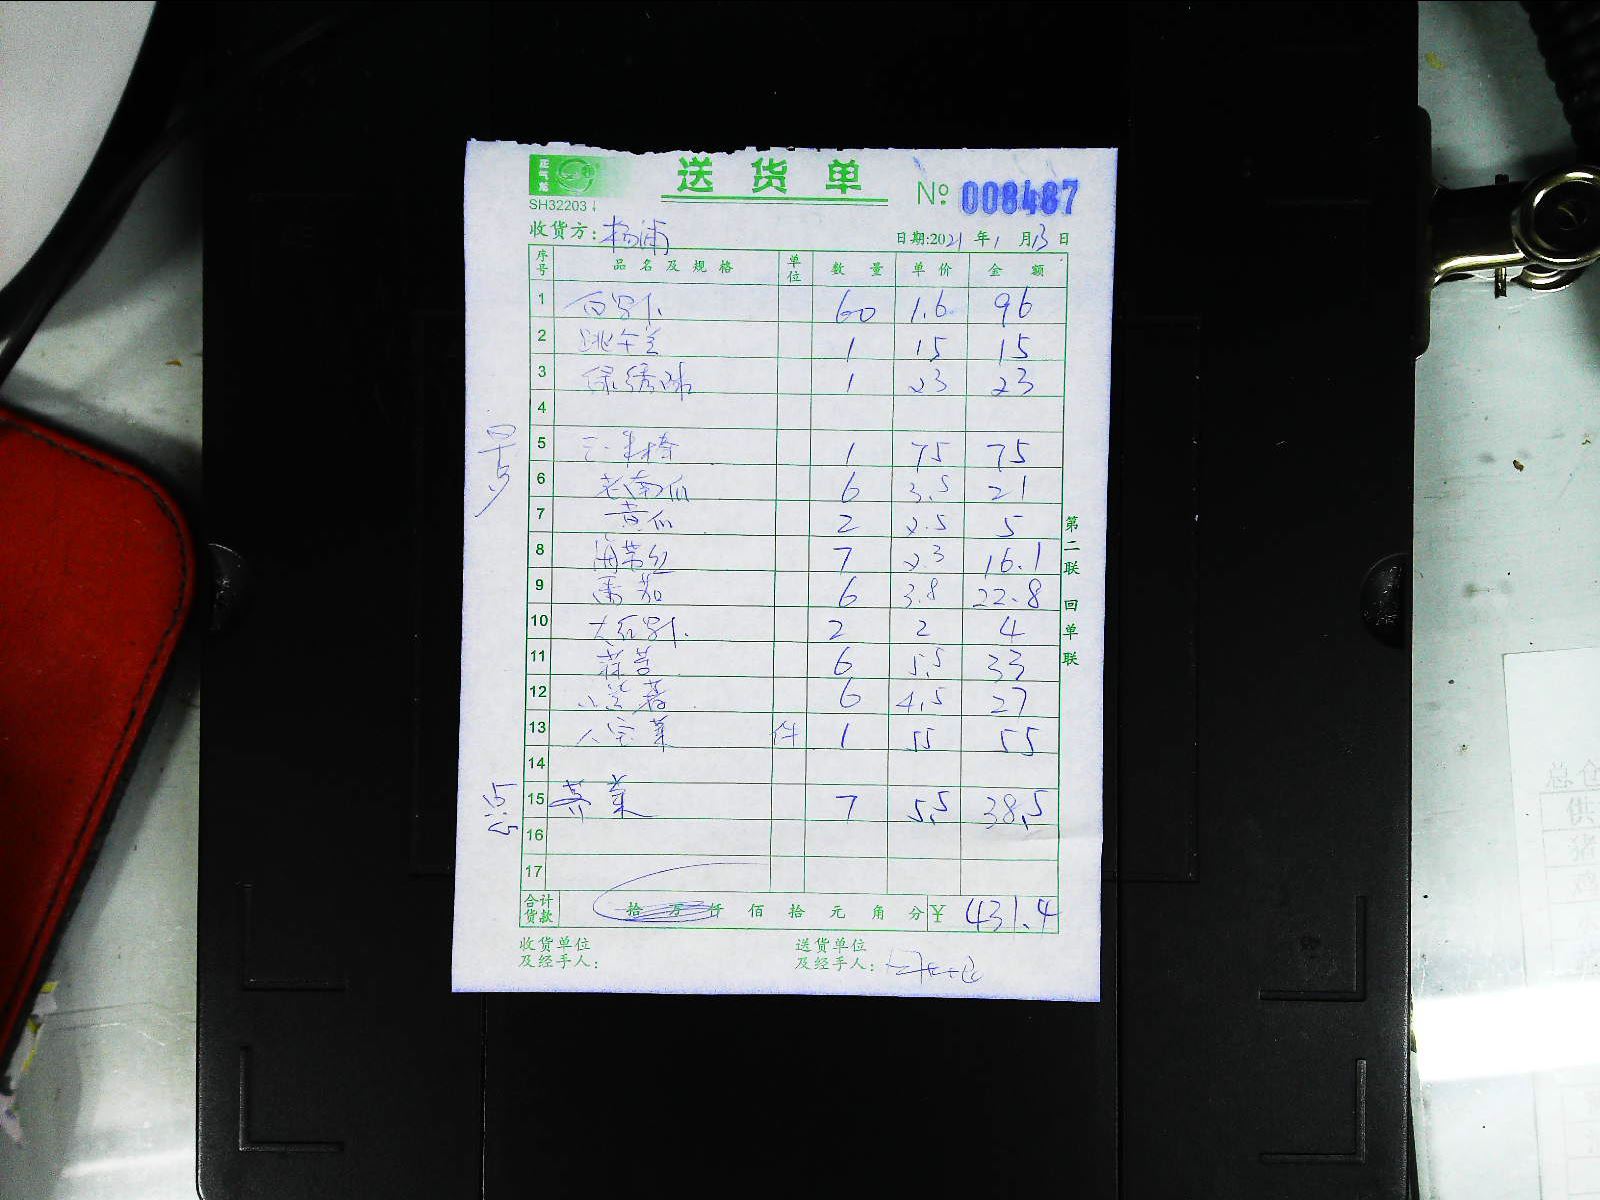 正气龙
送货单
№ 008487
SH32203
收货方:杨浦
日期:2021年1月13日
序号 品名及规格 单位 数量 单价 金额
1 白萝卜 60 1.6 96
2 跳午兰 1 15 15
3 绿绣球 1 23 23
4
5 1 75 75
6 老南瓜 6 3.5 21
7 黄瓜 2 2.5 5
8 海带丝 7 2.3 16.1
9 番茄 6 3.8 22.8
10 大红萝卜 2 2 4
11 蒜苔 6 5.5 33
12 6 4.5 27
13 八宝菜 件 1 55 55
14
点心
15 荠菜 7 5.5 38.5
16
17
合计货款 拾 万 仟 佰 拾 元 角 分 ¥ 431.4
收货单位及经手人:
送货单位及经手人:
第二联 回单联